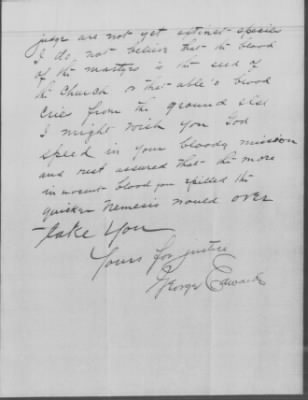 judge are not yet extinct species
I do not believe that the blood
of the martyrs is the seed of
the Church or that able's blood
cries from the ground else
I might wish you God
speed in your bloody mission
and rest assured that the more
innocent blood you spilled the
quicker Nemesis would over
-take you
Yours for justice
George Edwards